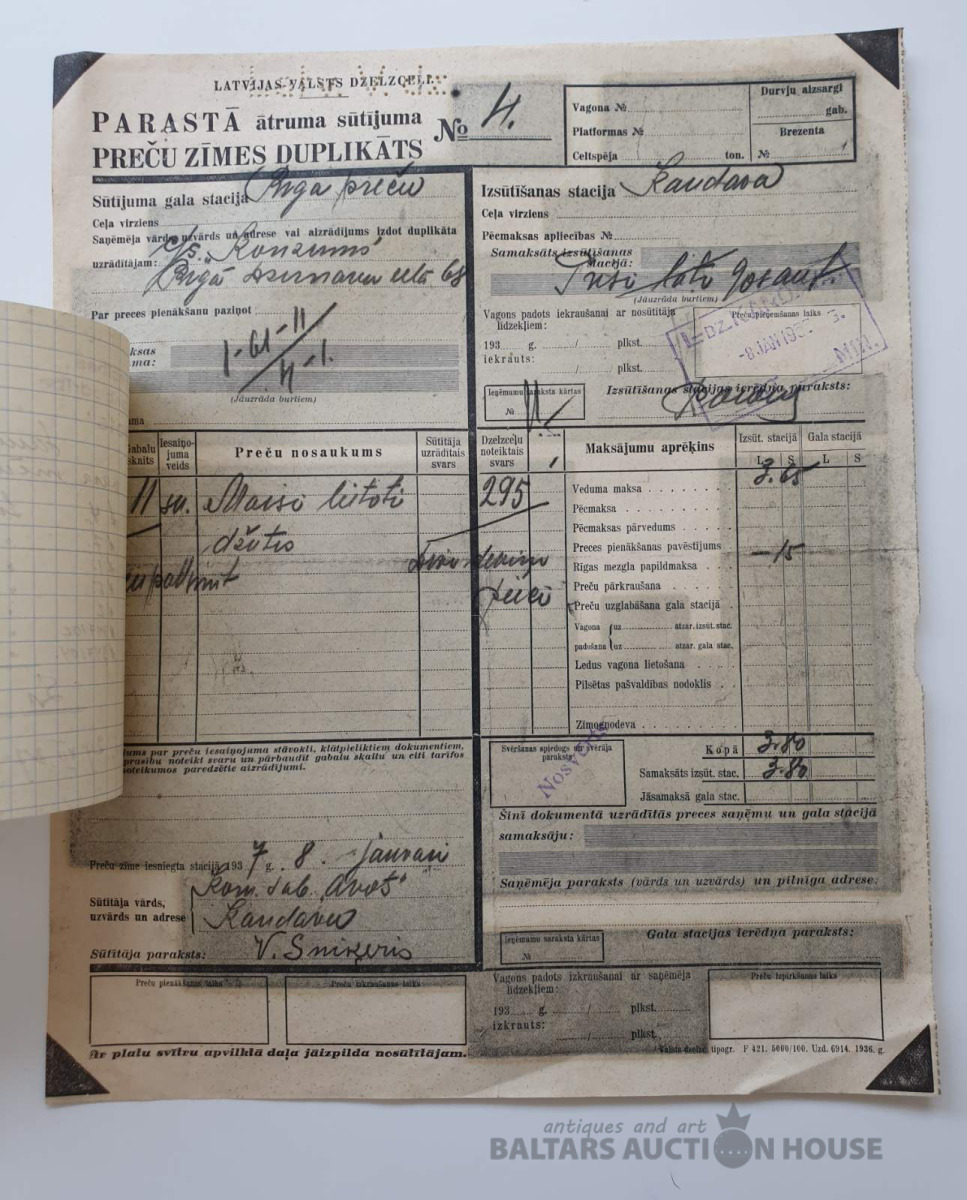 LATVIJAS VALSTS DZELZCEĻI.
PARASTĀ ātruma sūtījuma
PREČU ZĪMES DUPLIKĀTS
No 4.
Vagona №
Platformas №
Celtspēja ton.
Durvju aizsargi
gab.
Brezenta
№
Sūtījuma gala stacija Rīga preču
Ceļa virziens
Saņēmēja vārds, uzvārds un adrese vai aizrādījums izdot duplikāta
uzrādītājam: "Konzums"
Rīgā Dzirnavu ielā 68
Par preces pienākšanu paziņot
ksas
ma:
(Jāuzrāda burtiem)
ama
Izsūtīšanas stacija Kandava
Ceļa virziens
Pēcmaksas apliecības №
Samaksāts izsūtīšanas
stacijā:
(Jāuzrāda burtiem)
Vagons padots iekraušanai ar nosūtītāja
līdzekļiem:
193 g. / plkst.
iekrauts:
/ plkst.
Preču pieņemšanas laiks
-8 JAN 193
Ieņēmumu saraksta kārtas
№
Izsūtīšanas stacijas ierēdņa paraksts:
Gabalu
skaits
Iesaiņo-
juma
veids
Preču nosaukums
Sūtītāja
uzrādītais
svars
Dzelzceļu
noteiktais
svars
Maksājumu aprēķins
Izsūt. stacijā
L S
Gala stacijā
L S
11 Maisi lietoti
džutas
295
Veduma maksa 3.65
Pēcmaksa
Pēcmaksas pārvedums
Preces pienākšanas pavēstījums -15
Rīgas mezgla papildmaksa
Preču pārkraušana
Preču uzglabāšana gala stacijā
Vagona uz atzar. izsūt. stac.
padušana uz atzar. gala stac.
Ledus vagona lietošana
Pilsētas pašvaldības nodoklis
Zīmognodeva
Svēršanas spiedogs un svērāja
paraksts
Kopā 3.80
Samaksāts izsūt. stac. 3.80
Jāsamaksā gala stac.
jums par preču iesaiņojuma stāvokli, klātpieliktiem dokumentiem,
prasību noteikt svaru un pārbaudīt gabalu skaitu un citi tarifos
noteikumos paredzētie aizrādījumi.
Šinī dokumentā uzrādītās preces saņēmu un gala stacijā
samaksāju:
Saņēmēja paraksts (vārds un uzvārds) un pilnīga adrese:
Preču zīme iesniegta stacijā 193 7 g. 8. janvarī
Sūtītāja vārds,
uzvārds un adrese
Kom. sab. "Avots"
Kandavā
Sūtītāja paraksts: V. Sniķeris
Ieņēmumu saraksta kārtas
№
Gala stacijas ierēdņa paraksts:
Preču pienākšanas laiks
Preču izkraušanas laiks
Vagons padots izkraušanai ar saņēmēja
līdzekļiem:
193 g. / plkst.
izkrauts:
/ plkst.
Preču izpirkšanas laiks
Ar platu svītru apvilktā daļa jāizpilda nosūtītājam.
Valsts dzelzc. tipogr. F 421. 5000/100. Uzd. 6914. 1936. g.
antiques and art
BALTARS AUCTION HOUSE